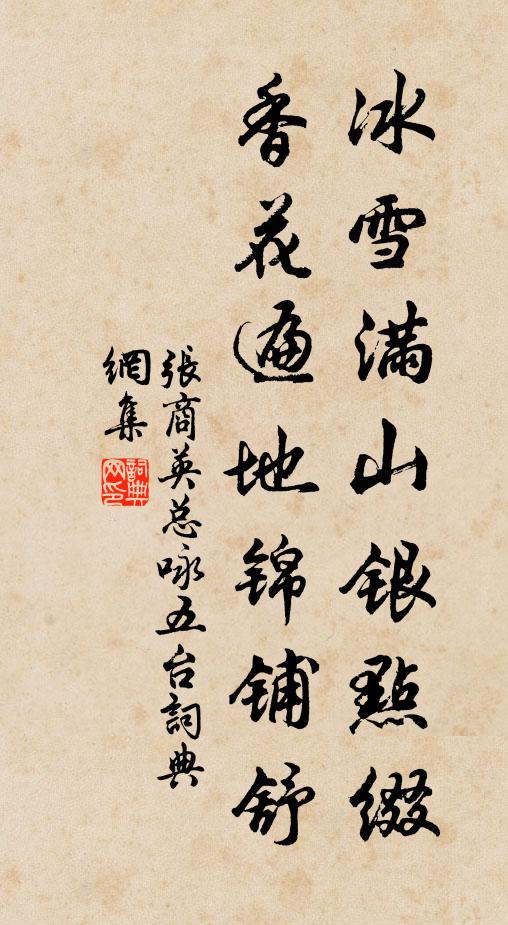 冰雪满山银點缀
香花遍地锦铺舒
張商英总咏五台詞典
網集
詞典网印